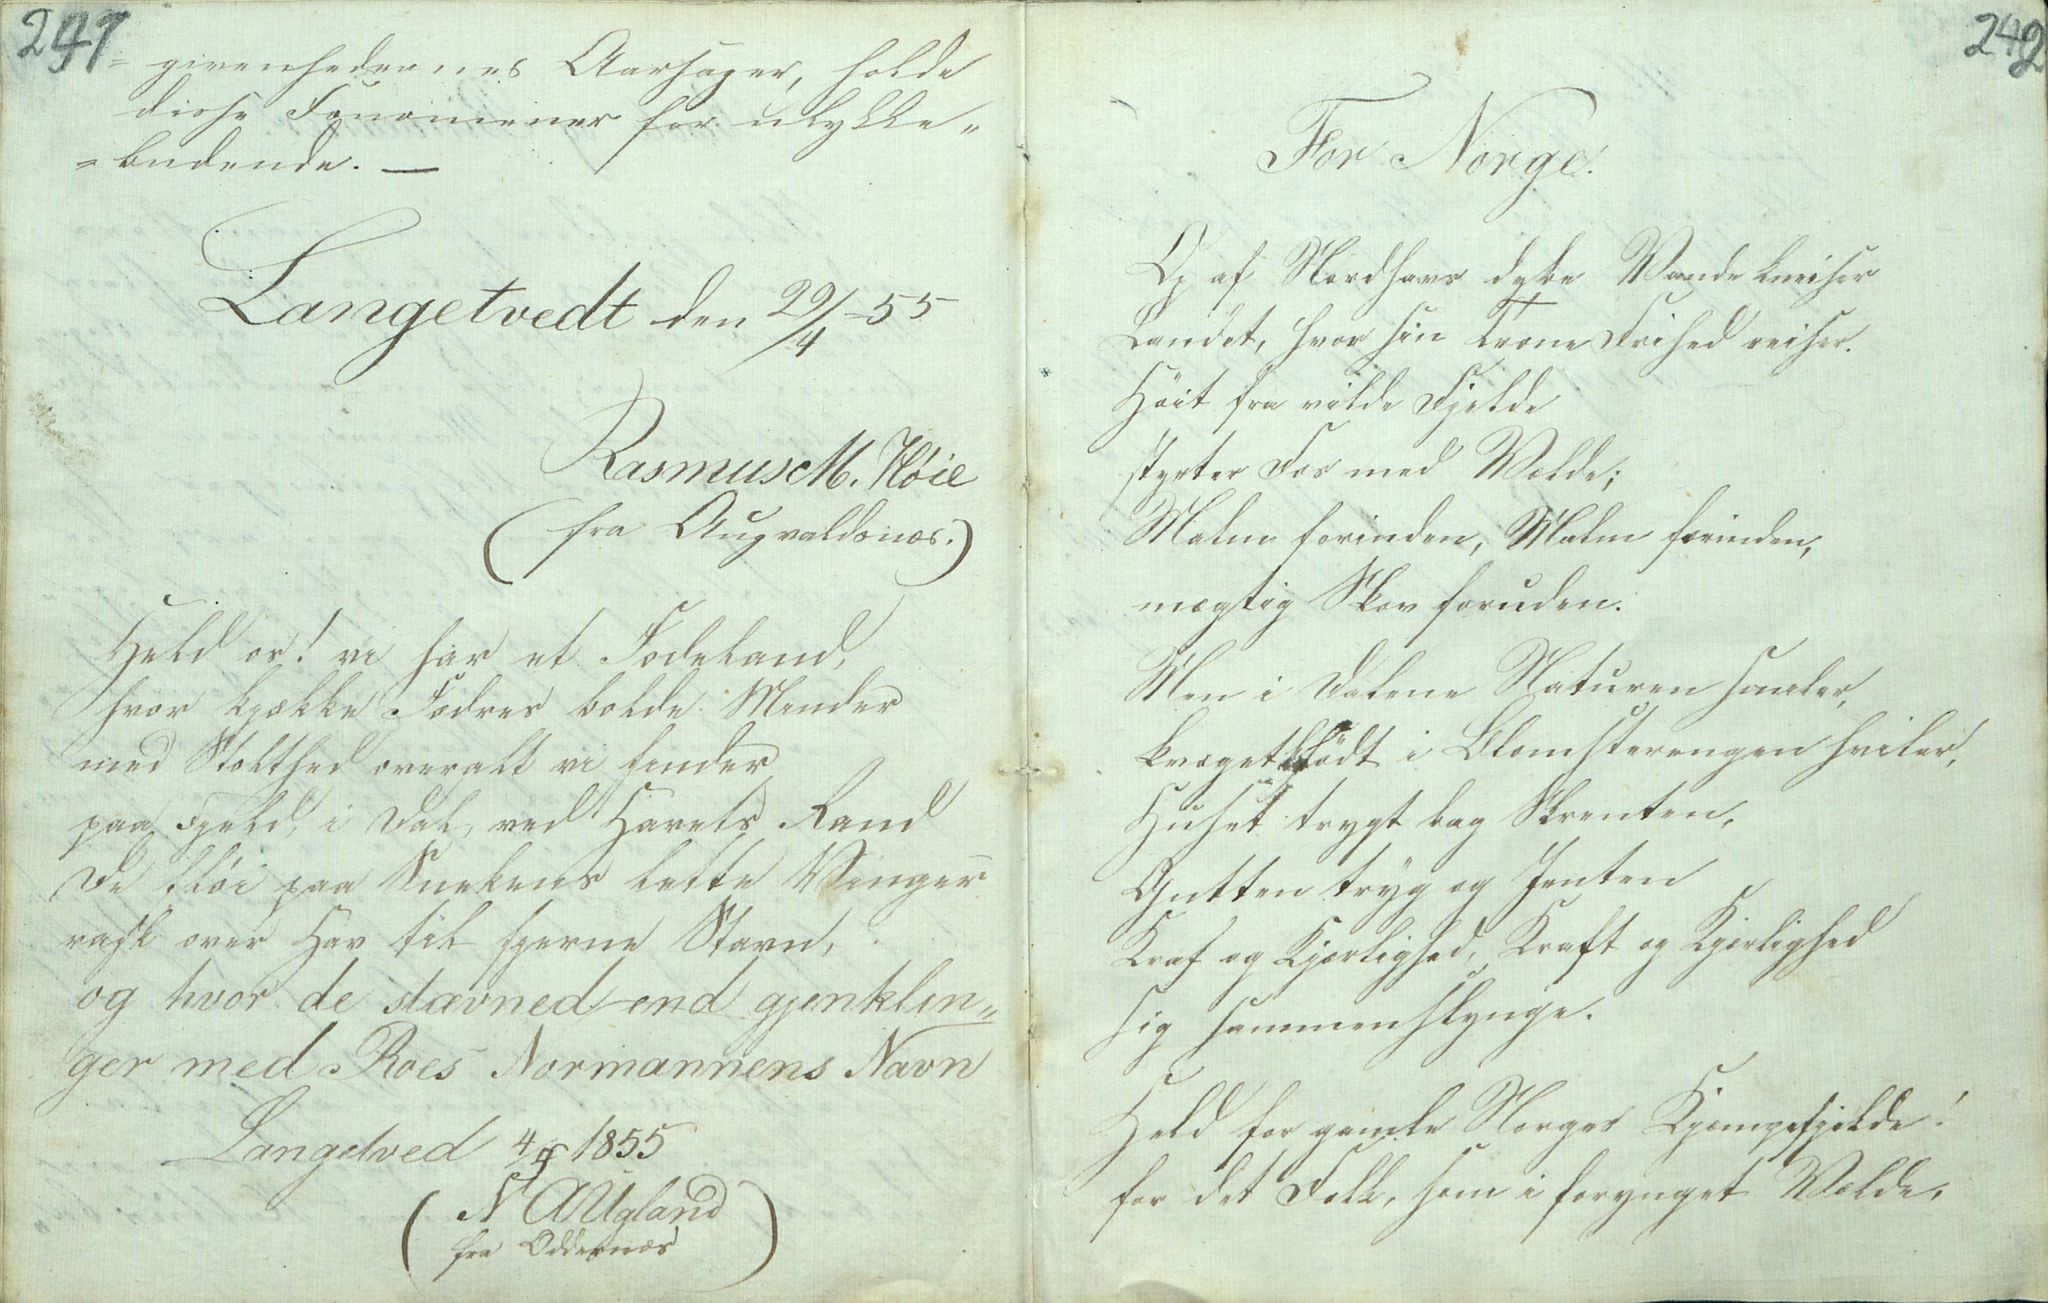 241
= givenhedernes Aarsager, holde
disse Fenomener for ulykke„
= budende. —
Langetvedt den 29/4 - 55
Rasmus M. Høie
(fra Augvaldsnæs.)
Held os! vi har et Fødeland,
hvor kjække Fædres bolde Minder
med Stolthed overalt vi finder
paa Fjeld, i Dal, ved Havets Rand
De fløi paa Snekens lette Vinger
rask over Hav til fjerne Stavn,
og hvor de stævned end gjenklin„
ger med Roes Normannens Navn
Langetved 4/5 1855
(N A Ugland
fra Oddernæs)
242
For Norge.
Op af Nordhavs dybe Vande kneiser
Landet, hvor sin Trone Frihed reiser.
Höit fra vilde Fjelde
styrter Fos med Vælde;
Malm forinden, Malm forinden,
mægtig Skov foruden.
Men i Dalene Naturen smiler,
kvæget födt i Blomsterengen hviler,
Huset trygt bag Skrenten,
Gutten tryg og Jenten
Kraf og Kjærlighed, Kraft og Kjærlighed
sig sammenslynge.
Held for gamle Norges Kjæmpefjelde!
for det Folk, som i forynget Vælde,